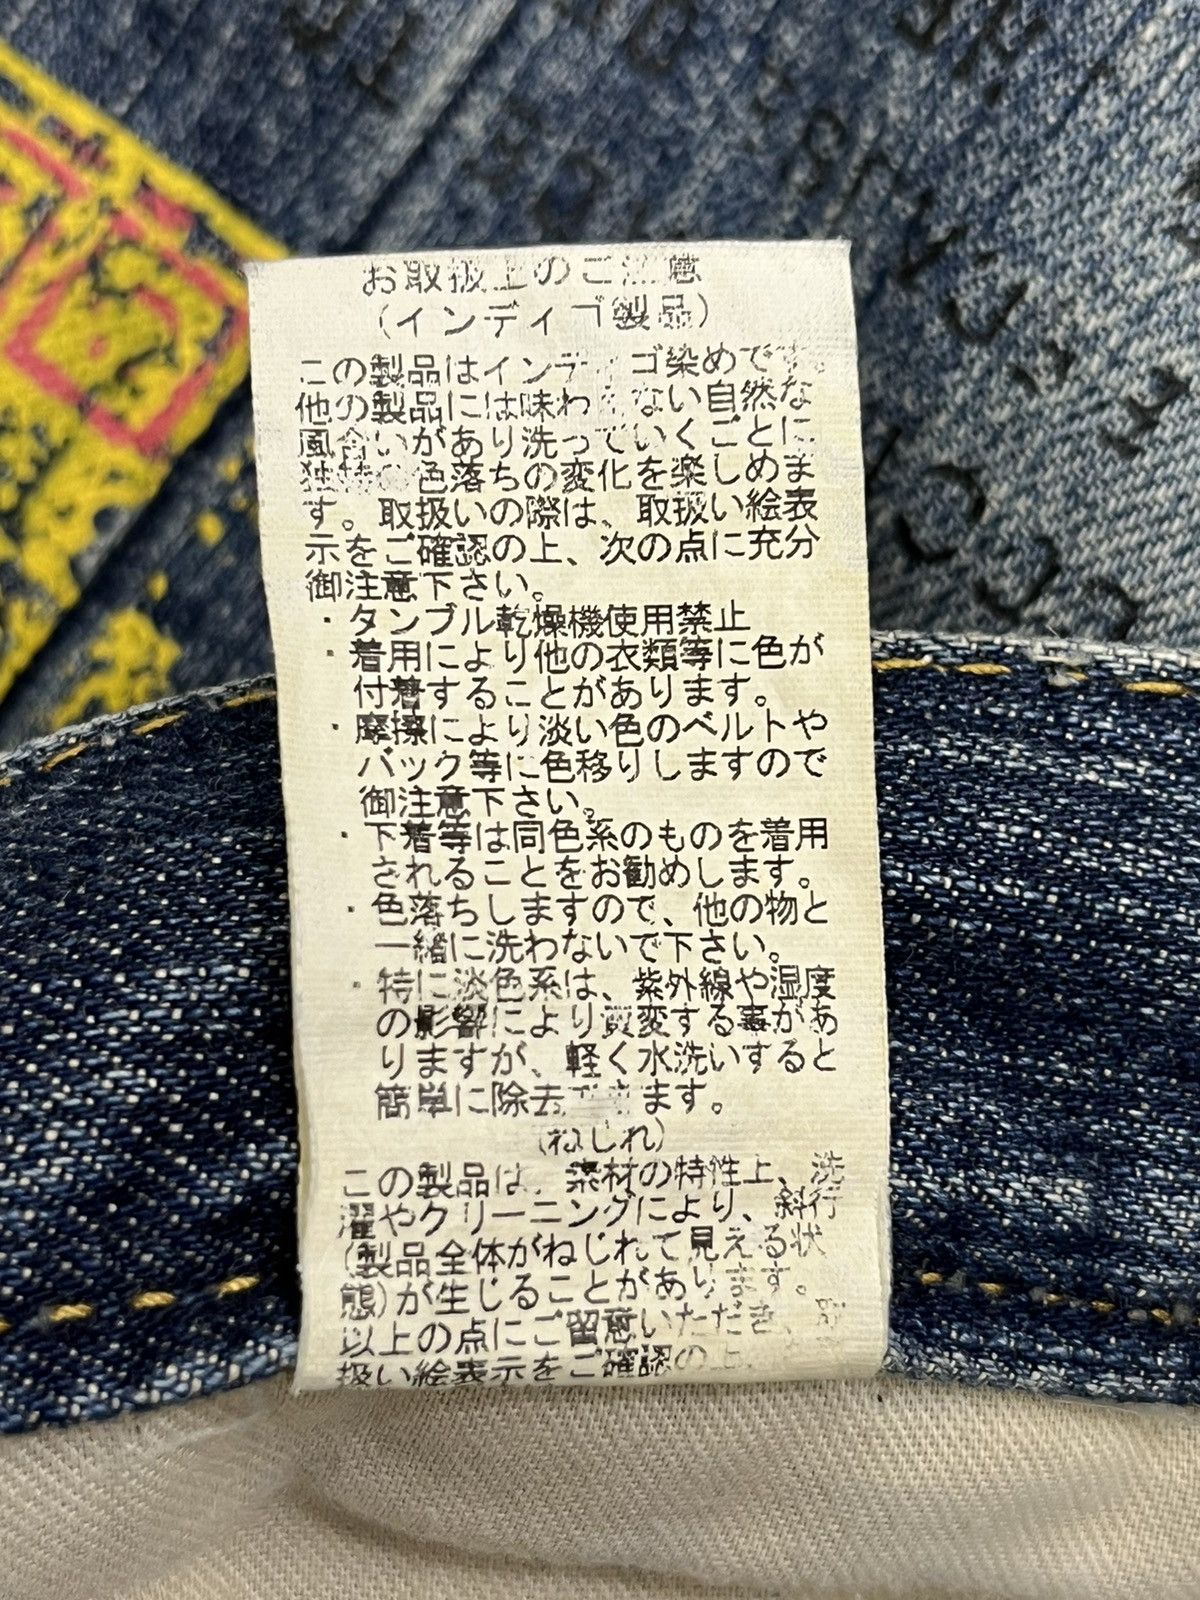 お取扱上のご注意
(インディゴ製品)
この製品はインディゴ染めです。
他の製品には味わえない自然な
風合いがあり洗っていくごとに
独特の色落ちの変化を楽しめま
す。取扱いの際は、取扱い絵表
示をご確認の上、次の点に充分
御注意下さい。
・タンブル乾燥機使用禁止
・着用により他の衣類等に色が
付着することがあります。
・摩擦により淡い色のベルトや
バック等に色移りしますので
御注意下さい。
・下着等は同色系のものを着用
されることをお勧めします。
・色落ちしますので、他の物と
一緒に洗わないで下さい。
・特に淡色系は、紫外線や湿度
の影響により黄変する事があ
りますが、軽く水洗いすると
簡単に除去できます。
(ねじれ)
この製品は、素材の特性上、洗
濯やクリーニングにより、斜行
(製品全体がねじれて見える状
態)が生じることがあります。
以上の点にご留意いただき、
扱い絵表示をご確認の上、